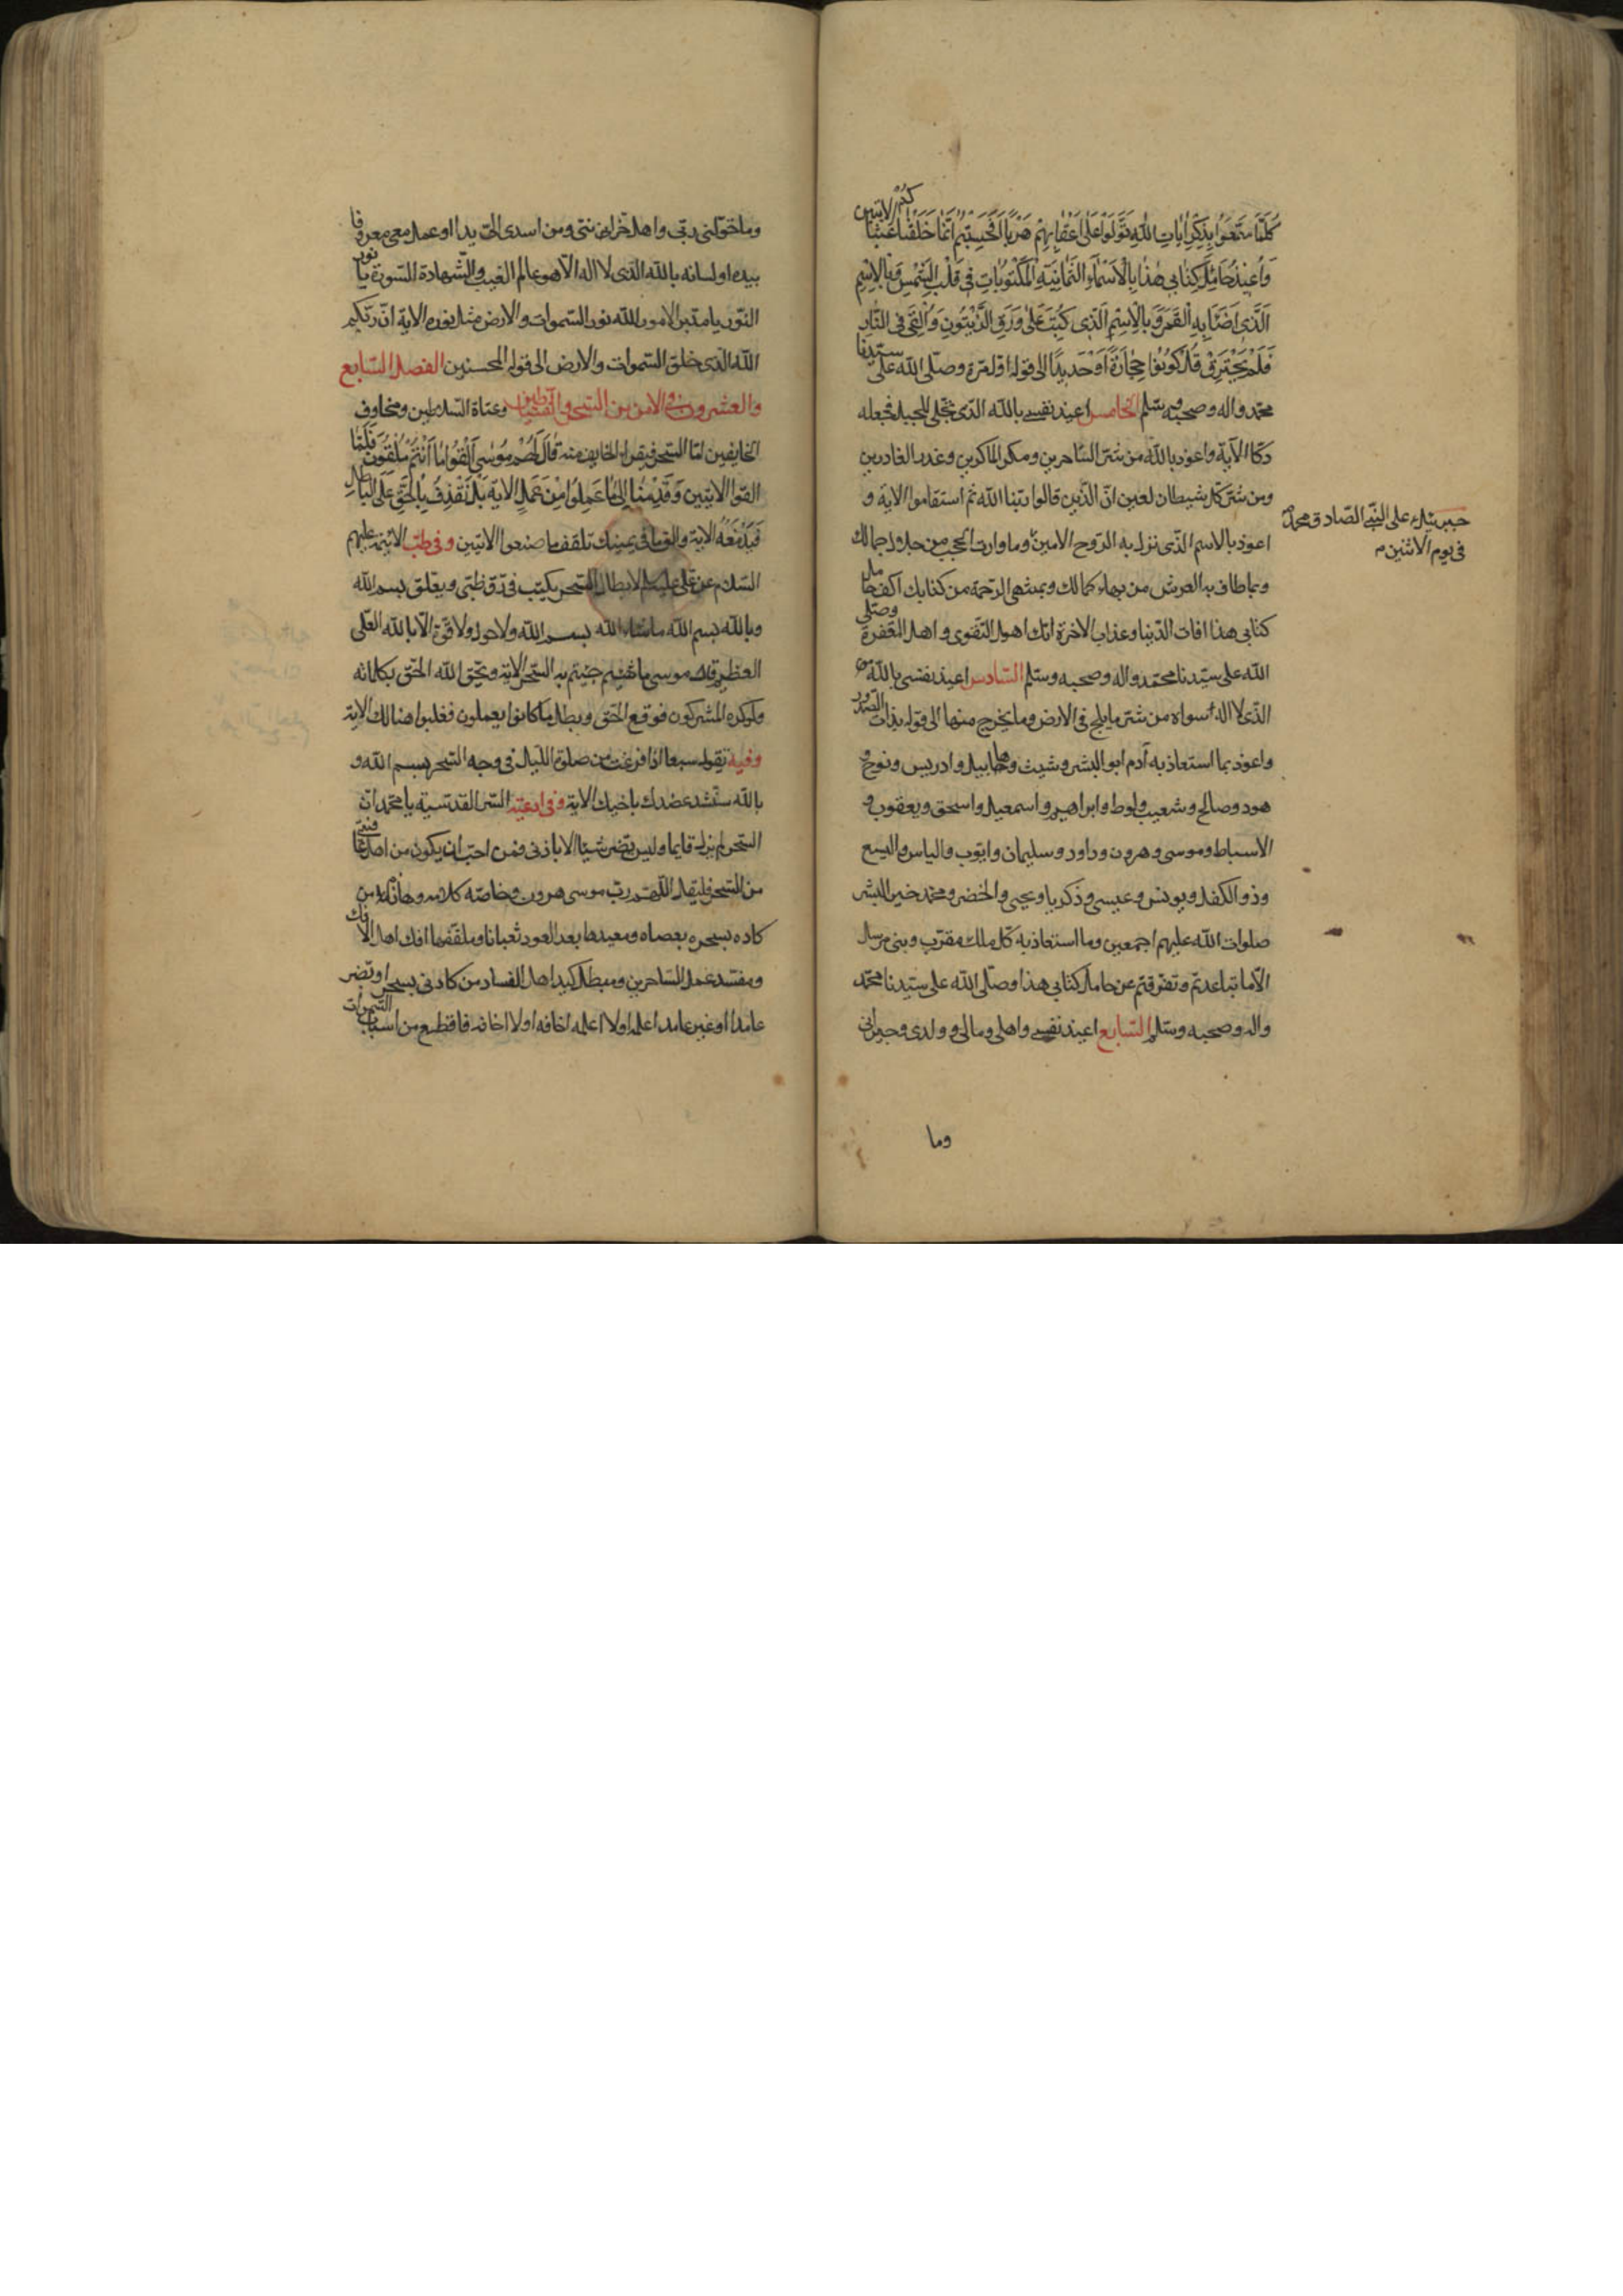 كُلَّمَا سَمِعُوا بِذِكْرِ اٰيَاتِ اللّٰهِ تَوَلَّوْا عَلٰى اَعْقَابِهِمْ هَرَبًا اَفَحَسِبْتُمْ اَنَّمَا خَلَقْنَاكُمْ عَبَثًا الايتين
وَاُعِيْذُ حَامِلَ كِتَابِي هٰذَا بِالْاَسْمَاءِ الثَّمَانِيَةِ الْمَكْتُوبَاتِ فِي قَلْبِ الشَّمْسِ وَبِالْاِسْمِ
الَّذِي اَضَاۤءَ بِهِ الْقَمَرُ وَبِالْاِسْمِ الَّذِي كُتِبَ عَلٰى وَرَقِ الزَّيْتُونِ وَاُلْقِيَ فِي النَّارِ
فَلَمْ يَحْتَرِقْ قُلْ كُونُوا حِجَارَةً اَوْ حَدِيدًا الى قوله اول مرة وصلى الله على سيدنا
محمد واله وصحبه وسلم الخامس اعيذ نفسى بالله الذى تجلى للجبل فجعله
دكا الآية واعوذ بالله من شر الساحرين ومكر الماكرين وغدر الغادرين
ومن شر كل شيطان لعين ان الذين قالوا ربنا الله ثم استقاموا الاية و
اعوذ بالاسم الذى نزل به الروح الامين وما وارت الحجب من جلال جمالك
وبما طاف به العرش من بهاء كمالك وبمنتهى الرحمة من كتابك اكف حامل
كتابى هذا افات الدنيا وعذاب الاخرة انك اهل التقوى واهل المغفرة وصلى
الله على سيدنا محمد واله وصحبه وسلم السادس اعيذ نفسى بالله
الذى لا اله سواه من شر ما يلج فى الارض وما يخرج منها الى قوله بذات الصدور
واعوذ بما استعاذ به آدم ابو البشر وشيث وهابيل وادريس ونوح و
هود وصالح وشعيب ولوط وابراهيم واسمعيل واسحق ويعقوب و
الاسباط وموسى وهرون وداود وسليمان وايوب والياس واليسع
وذو الكفل ويونس وعيسى وذكريا ويحيى والخضر ومحمد خير البشر
صلوات الله عليهم اجمعين وما استعاذ به كل ملك مقرب ونبى مرسل
الا ما تباعدتم وتفرقتم عن حامل كتابى هذا وصلى الله على سيدنا محمد
واله وصحبه وسلم السابع اعيذ نفسى واهلى ومالى وولدى وجيرانى
وما
جبرئيل على النبى الصادق محمد
فى يوم الاثنين
وما خولنى ربى واهل حزانتى ومن اسدى الى يدا او عمل معى معروفا
بيده او لسانه بالله الذى لا اله الا هو عالم الغيب والشهادة السورة يا نور
النور يا مدبر الامور الله نور السموات والارض مثل نوره الاية ان ربكم
الله الذى خلق السموات والارض الى قوله المحسنين الفصل السابع
والعشرون فى الامن من السحر والشياطين وعتاة السلاطين ومخاوف
الخايفين اما السحر فيقرا الخايف منه قَالَ لَهُمْ مُوسٰى اَلْقُوا مَا اَنْتُمْ مُلْقُونَ فَلَمَّا
القوا الايتين وَقَدِمْنَا اِلٰى مَا عَمِلُوا مِنْ عَمَلٍ الاية بَلْ نَقْذِفُ بِالْحَقِّ عَلَى الْبَاطِلِ
فَيَدْمَغُهُ الاية والق ما فى يمينك تلقف ما صنعوا الايتين وفى طب الائمة عليهم
السلام عن على عليه السلام لابطال السحر يكتب فى رق ظبى ويعلق بسم الله
وبالله بسم الله ما شاء الله بسم الله ولا حول ولا قوة الا بالله العلى
العظيم قال موسى ما جئتم به السحر الاية ويحق الله الحق بكلماته
ولو كره المشركون فوقع الحق وبطل ما كانوا يعملون فغلبوا هنالك الاية
وفيه تقول سبعا اذا فرغت من صلوة الليل فى وجه السحر بسم الله و
بالله سنشد عضدك باخيك الاية وفى ادعية السر القدسية يا محمد ان
السحر لم يزل قايما وليس يضر شيئا الا باذنى فمن احب ان يكون من اهل عافيتى
من السحر فليقل اللهم رب موسى هرون وخاصه كلامه وهازم من
كاده بسحره بعصاه ومعيدها بعد العود ثعبانا وملقفها افك اهل الافك
ومفسد عمل الساحرين ومبطل كيد اهل الفساد من كادنى بسحر او بضر
عامدا او غير عامد اعلمه او لا اعلمه اخافه او لا اخافه فاقطع من اسباب السموات